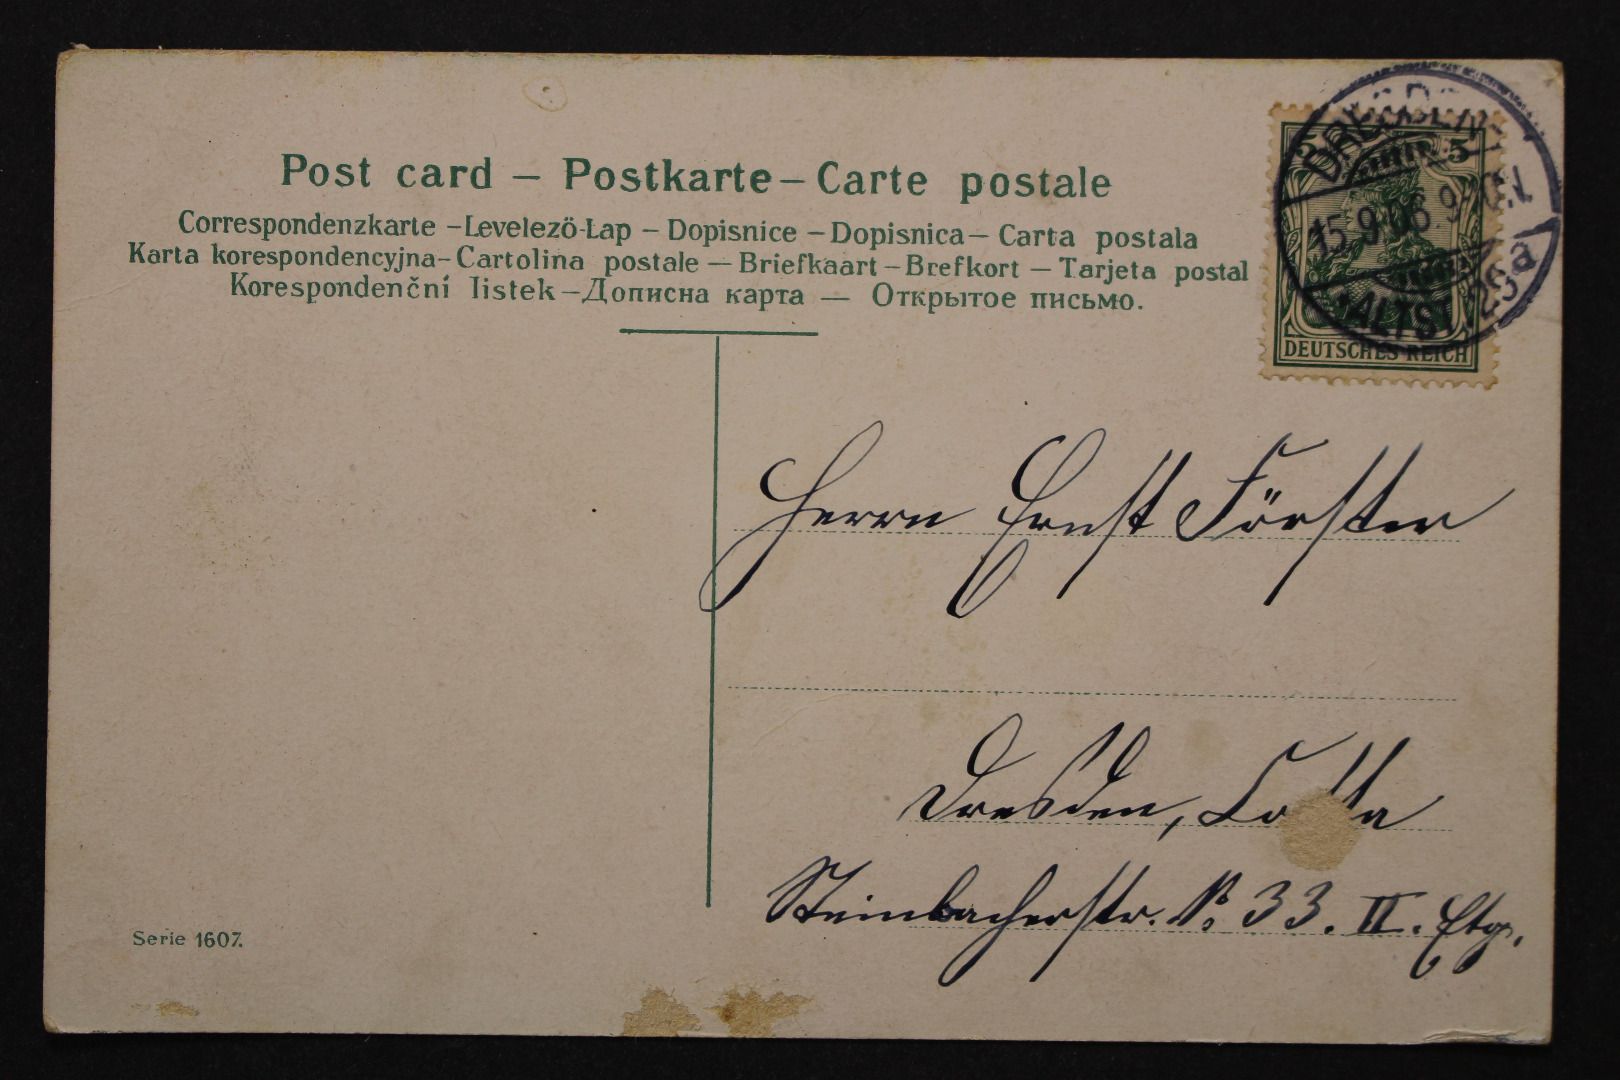 Post card – Postkarte – Carte postale
Correspondenzkarte – Levelező-Lap – Dopisnice – Dopisnica – Carta postala
Karta korespondencyjna – Cartolina postale – Briefkaart – Brefkort – Tarjeta postal
Korespondenční listek – Дописна карта — Открытое письмо.
5 5
DRESDEN
15.9.06. 9-10N.
*ALTST. 26a
DEUTSCHES REICH
Herrn Ernst Förster
Dresden, Cotta
Steinbacherstr. No. 33. II. Etg.
Serie 1607.